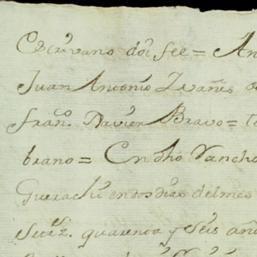 Escrivano doi fee = An
Juan Antonio Zvañis
fran.co Xavier Bravo = te
brano = En dho Rancho
Guarachi en tos dias del mes
Settz. quarenta y Seis año